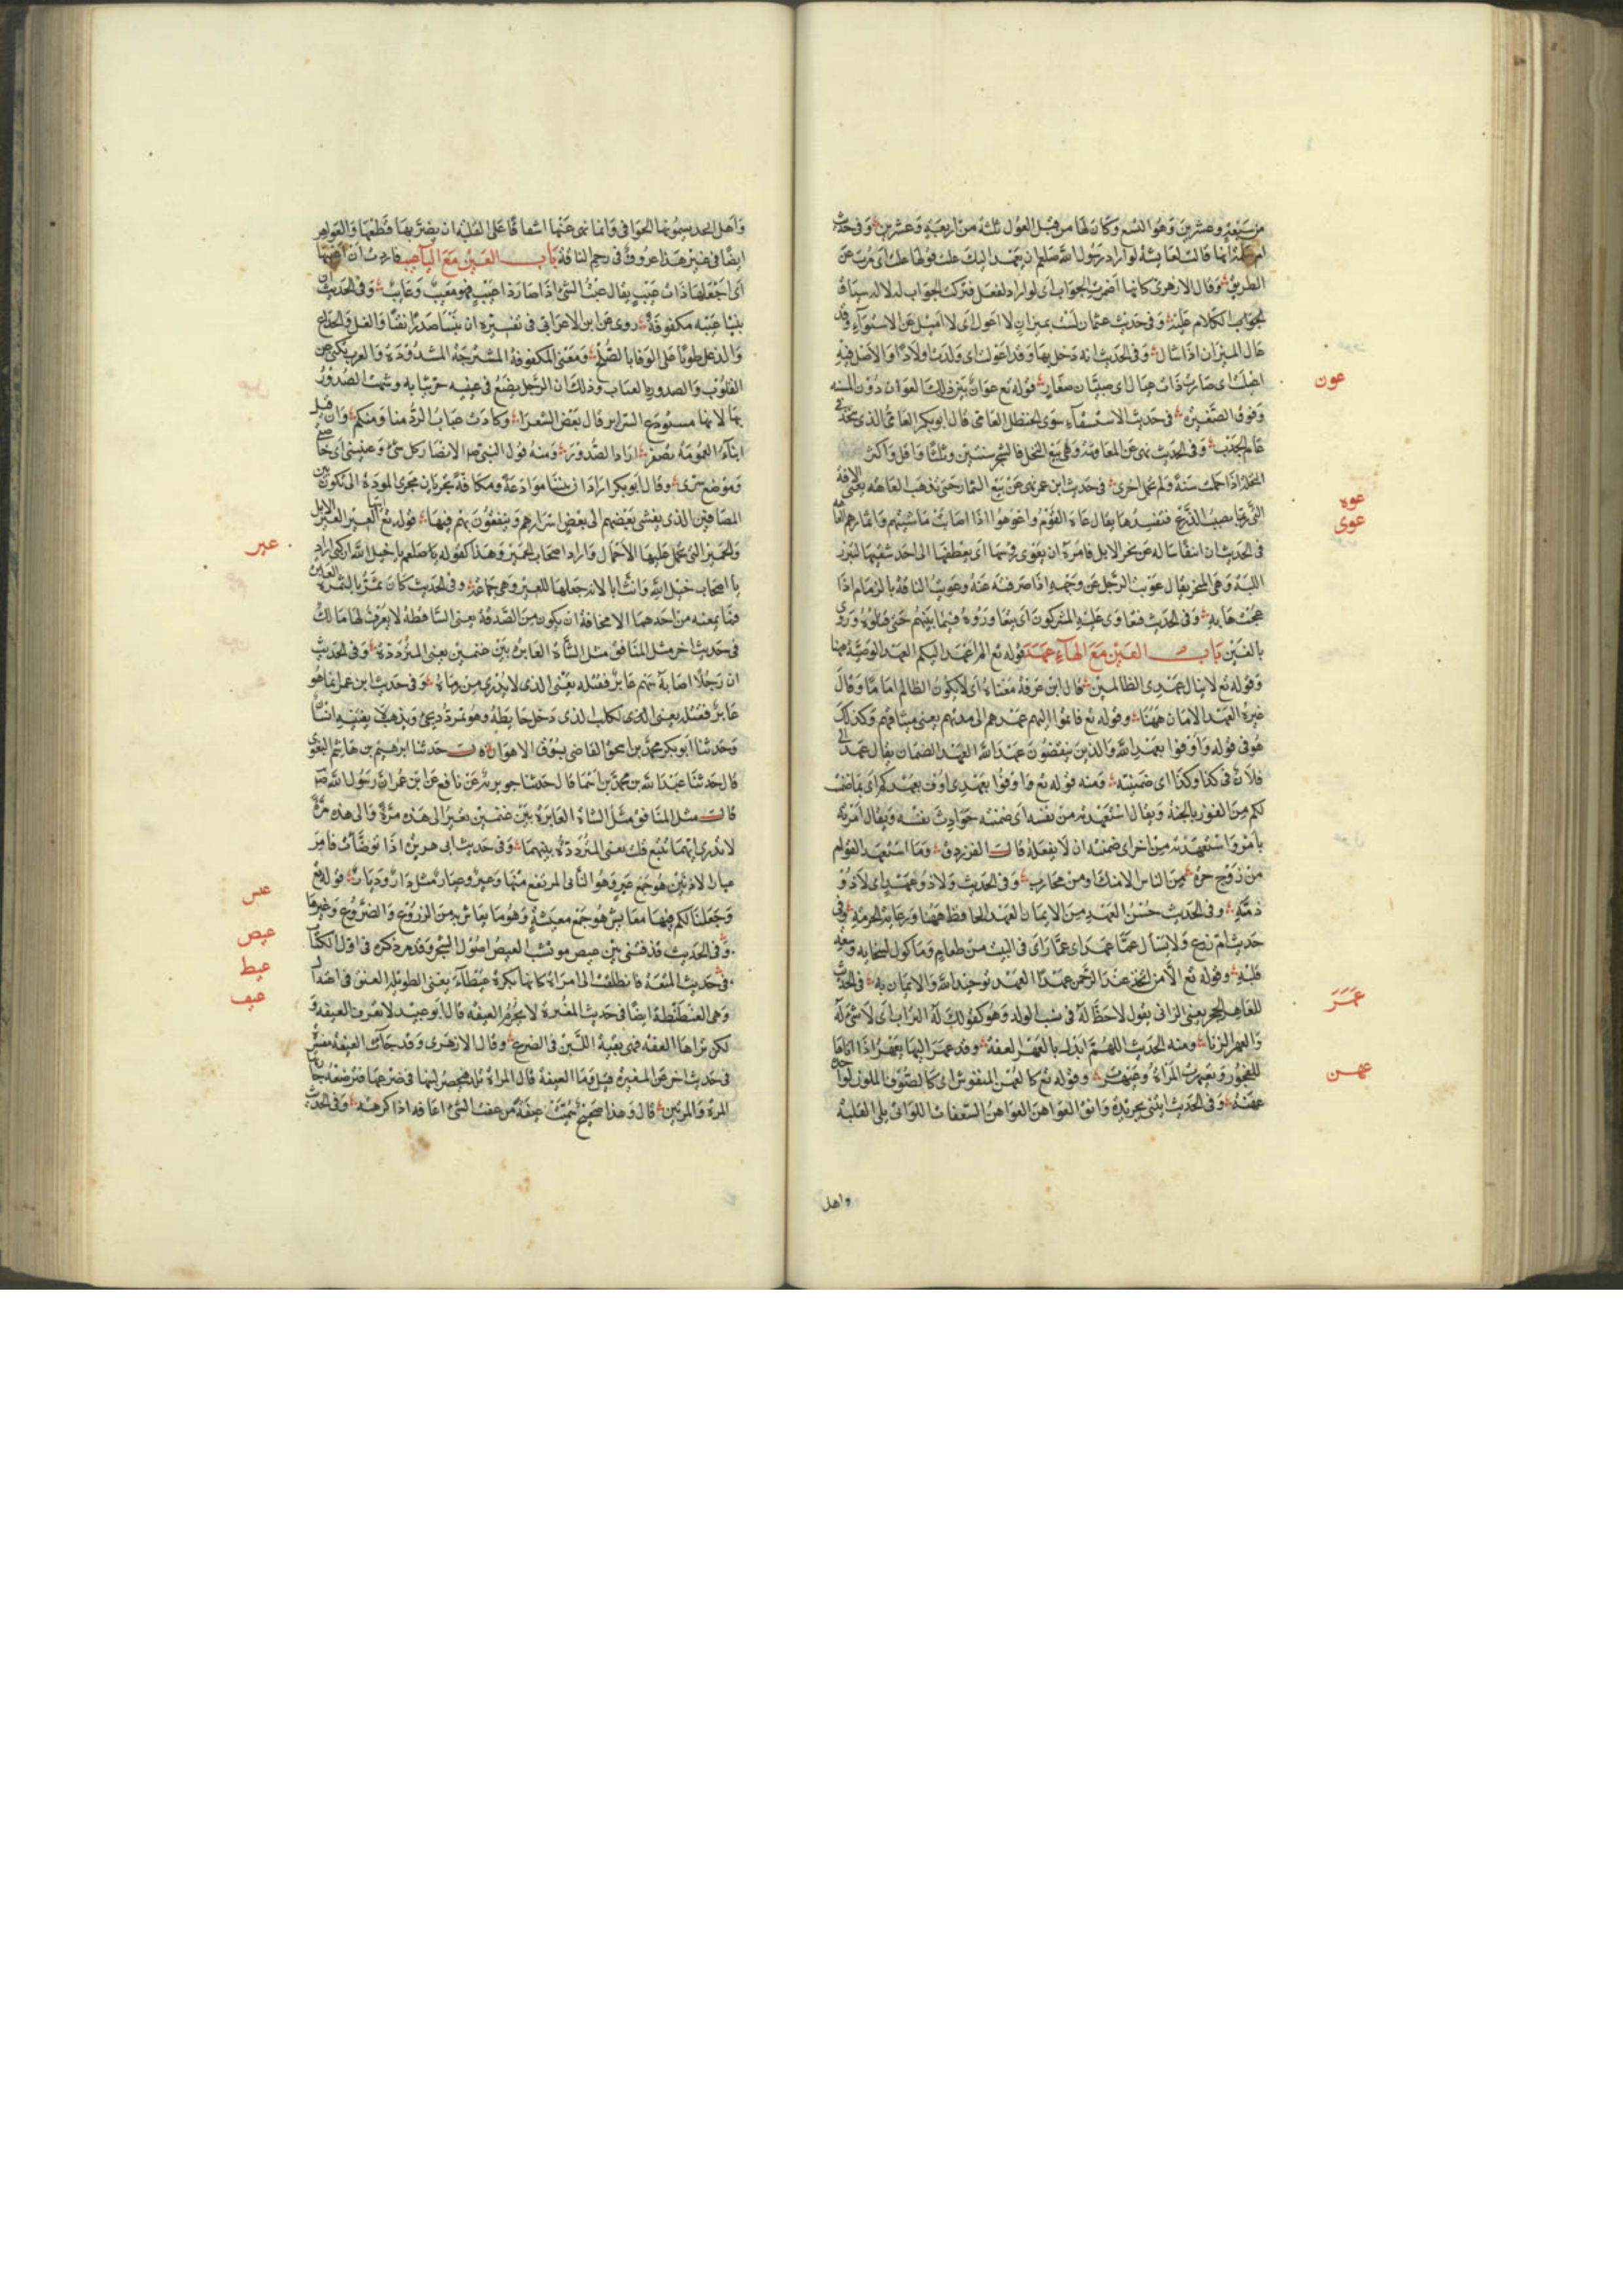 من سبعة وعشرين وهو التسع وكان لها من قبل العول ثلثة من اربعة وعشرين وفى حديث
انها قالت لعائشة لو اراد رسول الله صلعم ان يعهد اليك علت قولها علت اى عدت عن
الطريق وقال الازهرى كانها اضمرت الجواب اى لو اراد لفعل فتركت الجواب لدلالة سياق
الكلام عليه وفى حديث عثمان لست بميزان لا اعول اى لا اميل عن الاستواء
عال الميزان اذا شال وفى الحديث انه دخل بها وقد اعولت اى ولدت اولادا والاصل فيه
اى صارت ذات عيال اى صبيان صغار قوله تع عوان بين ذلك العوان دون المسنة
عون
وفوق الصغيرة فى حديث الاستسقاء سوى الحنظل العامى قال ابو بكر العامى الذى يتخذ فى
عام الجدب وفى الحديث نهى عن المعاومة وهى بيع النخل والشجر سنتين وثلثا فاقل واكثر
النخلة اذا حملت سنة ولم تحمل اخرى فى حديث ابن عمر نهى عن بيع الثمار حتى تذهب العاهة يعنى الافة
عوه
التى تصيب الزرع فتفسدها يقال عاه القوم واعوهوا اذا اصابت ماشيتهم وثمارهم
عوى
فى الحديث ان انيفا ساله عن نحر الابل فامره ان يعوى رؤسها اى يعطفها الى احد شقيها لتبرز
اللبة وهى المنحر يقال عويت الرجل عن وجهه اذا صرفته عنه وعويت الناقة بالزمام اذا
عجت هابه وفى الحديث فتعاوى عليه المشركون اى تعاوروه فيما بينهم حتى قتلوه وروى
بالغين باب العين مع الهاء عهد قوله تع الم اعهد اليكم العهد الوصية هنا
وقوله تع لا ينال عهدى الظالمين قال ابن عرفة معناه اى لا يكون الظالم اماما وقال
غيره العهد الامان ههنا وقوله تع فاتموا اليهم عهدهم الى مدتهم يعنى ميثاقهم وكذلك
هو فى قوله واوفوا بعهد الله والذين ينقضون عهد الله العهد الضمان يقال عهد الى
فلان فى كذا وكذا اى ضمنيه ومنه قوله تع واوفوا بعهدى اوف بعهدكم اى بما ضمنت
لكم من الفوز بالجنة ويقال استعهدته من نفسه اى ضمنته حوادث نفسه ويقال امرته
بامر واستعهدته من اخر اى ضمنته ان لا يفعله قال الفرزدق وما استعهد القوام
من زوج حرة من الناس الا منك او من محارب وفى الحديث ولا ذو عهد اى لا ذو
ذمة وفى الحديث حسن العهد من الايمان العهد الحفاظ ههنا ورعاية الحرمة وفى
حديث ام زرع ولا يسال عما عهد اى عما راى فى البيت من طعام وماكول لسخائه وسعة
قلبه وقوله تع الا من اتخذ عند الرحمن عهدا العهد توحيد الله والايمان به فى الحديث
عهر
للعاهر الحجر يعنى الزانى يقول لا حظ له فى نسب الولد وهو كقولك له التراب اى لا شئ له
والعهر الزنا ومنه الحديث اللهم ابدله بالعهر العفة وقد عهر اليها يعهر اذا اتاها
للفجور وقوله تع كالعهن المنفوش اى كالصوف الملون
عهن
عهنة وفى الحديث ائتنى بجريدة واتق العواهن العواهن السعفات اللواتى يلى القلبة
واهل
واهل نجد يسمونها الخوافى وانما نهى عنها اشفاقا على القلبة ان يضر بها قطعها والعواهن
ايضا فى غير هذا عروق فى رحم الناقة باب العين مع الياء عيب فاردت ان اعيبها
اى اجعلها ذات عيب يقال عبت الشئ اذا صار ذا عيب فهو معيب وعايب وفى الحديث
بيننا عيبة مكفوفة روى عن ابن الاعرابى فى تفسيره ان بيننا صدرا نقيا من الغل والخداع
والدغل مطويا على الوفا بالصلح ومعنى المكفوفة المشرجة المشدودة والعرب تكنى عن
القلوب والصدور بالعياب وذلك ان الرجل يضع فى عيبه حر ثيابه وشبهت الصدور
بها لانها مستودع السرائر قال بعض الشعراء وكادت عياب الود منا ومنكم وان قيل
ابناء العمومة تصفر اراد الصدور ومنه قول النبى صلعم الانصار كرشى وعيبتى اى خاصتى
وموضع سرى وقال ابو بكر اراد ان بيننا موادعة ومكافة تجريان مجرى المودة التى تكون بين
المتصافين الذى يفشى بعضهم الى بعض اسرارهم ويثقون بهم فيها قوله تع ايتها العير العير الابل
عير
والحمير التى تحمل عليها الاحمال واراد اصحاب العير وهذا كقوله صلعم يا خيل الله اركبى اراد
يا اصحاب خيل الله وانث ايا لانه جعلها للعير وهى جماعة وفى الحديث كان يمر بالتمرة العايرة
فما يمنعه من اخذها الا مخافة ان يكون من الصدقة يعنى الساقطة لا يعرف لها مالك
فى حديث اخر مثل المنافق مثل الشاة العايرة بين غنمين يعنى المترددة وفى الحديث
ان رجلا اصابه سهم عاير فقتله يعنى الذى لا يدرى من رماه وفى حديث ابن عمر انما هو
عاير
وحدثنا ابو بكر محمد بن اسحق القاضى بسوق الاهواز حدثنا ابرهيم بن هاشم البغوى
قال حدثنا عبد الله بن محمد بن اسما قال حدثنا جويرية عن نافع عن ابن عمر ان رسول الله
قال مثل المنافق مثل الشاة العايرة بين غنمين تعير الى هذه مرة والى هذه مرة
لا تدرى ايهما تتبع قلت يعنى المترددة بينهما وفى حديث ابى هريرة اذا توضات فامر
عيار الاذنين هو جمع عير وهو الناتى المرتفع منها وعير وعيار مثل دار وديار قوله تع
عيش
وجعلنا لكم فيها معايش هو جمع معيشة وهو ما يعاش به من الزروع والضروع وغيرها
عيص
وفى الحديث قذفتنى بين عيص موتشب العيص اصول الشجر وقد مر ذكره فى اول الكتاب
عيط
فى حديث المتعة فانطلقت الى امراة كانها بكرة عيطاء يعنى الطويلة العنق فى اعتدال
عيف
وهى العنطنطة ايضا فى حديث المغيرة لا تحرم العيفة قال ابو عبيد لا نعرف العيفة و
لكن نراها العفة فهى بقية اللبن فى الضرع وقال الازهرى وقد جات العيفة مفسرة
فى حديث اخر عن المغيرة قيل وما العيفة قال المراة تلد فيحصر لبنها فى ضرعها فترضعه جارتها
المرة والمرتين قال وهذا صحيح سميت عيفة من عفت الشئ اعافه اذا كرهته وفى الحديث